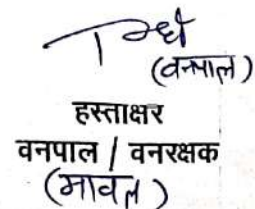 (वनपाल)
हस्ताक्षर
वनपाल / वनरक्षक
(मावळ)